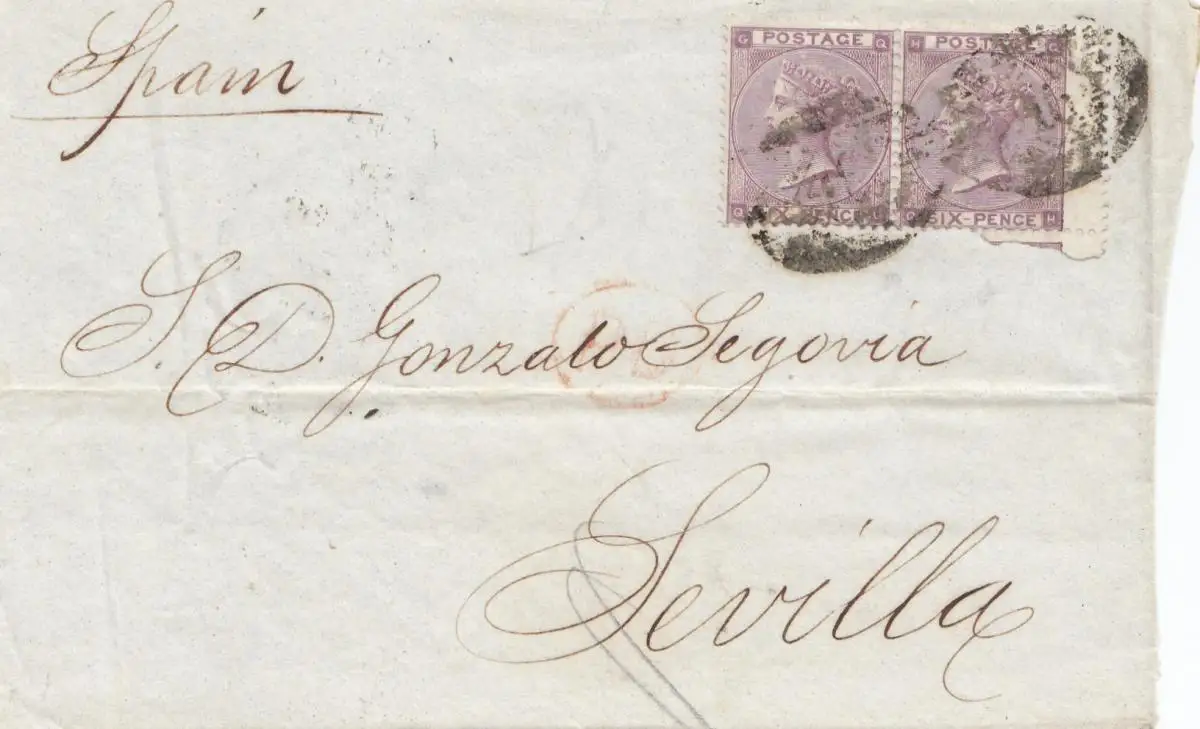 Spain
G POSTAGE Q
H POSTAGE
Q SIX-PENCE G
Q SIX-PENCE H
S. D. Gonzalo Segovia
Sevilla